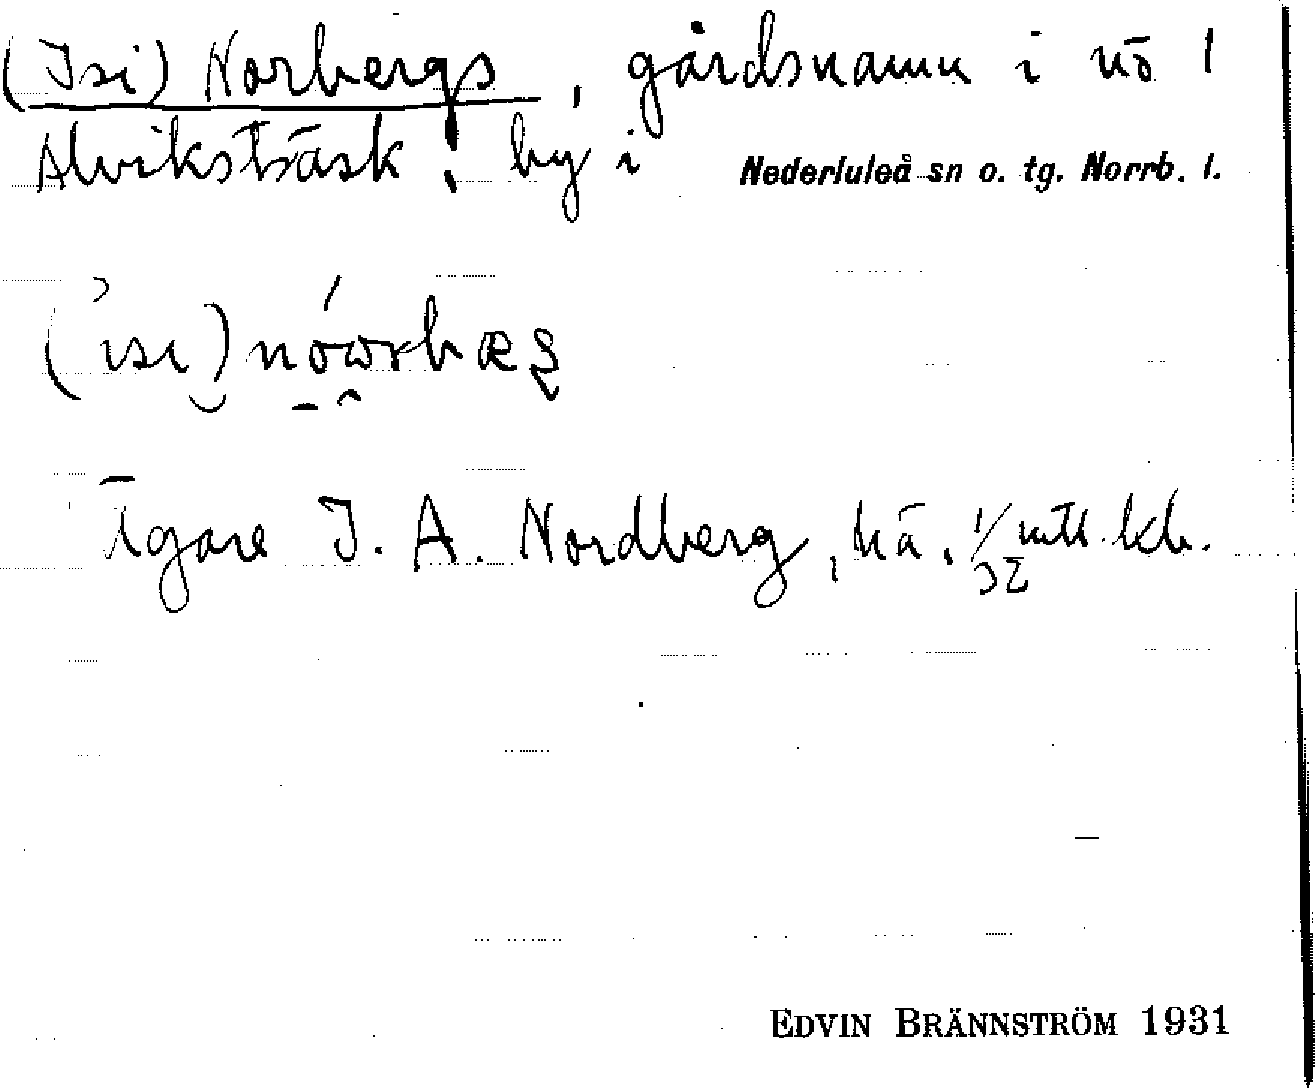 (Isi) Norbergs, gårdsnamn i nö 1
Alviksträsk! by i Nederluleå sn o. tg. Norrb. l.
(isi) nóωrbæș
Ägare J. A. Nordberg, hä. 1/32 mtl. kb.
EDVIN BRÄNNSTRÖM 1931